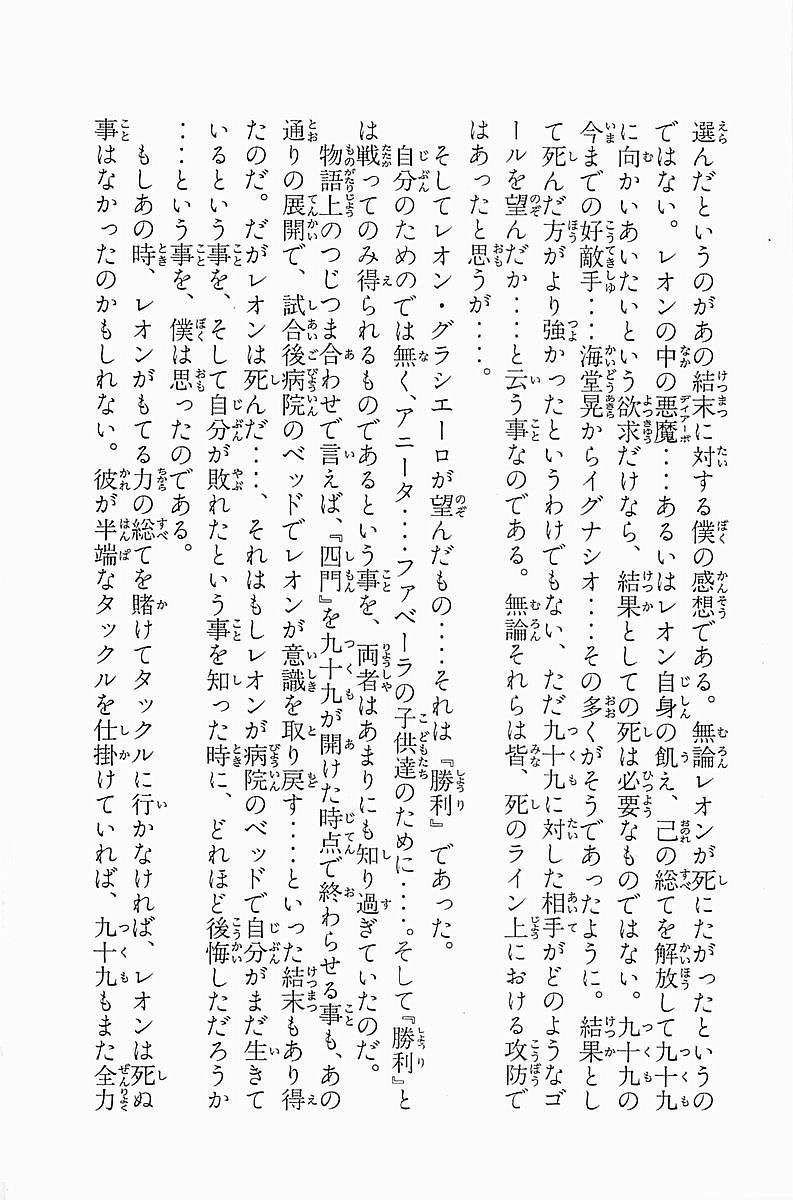 選んだというのがあの結末に対する僕の感想である。無論レオンが死にたがったというの
ではない。レオンの中の悪魔‥‥あるいはレオン自身の飢え、己の総てを解放して九十九
に向かいあいたいという欲求だけなら、結果としての死は必要なものではない。九十九の
今までの好敵手‥‥海堂晃からイグナシオ‥‥その多くがそうであったように。結果とし
て死んだ方がより強かったというわけでもない、ただ九十九に対した相手がどのようなゴ
ールを望んだか‥‥と云う事なのである。無論それらは皆、死のライン上における攻防で
はあったと思うが‥‥。
そしてレオン・グラシエーロが望んだもの‥‥それは『勝利』であった。
自分のためのでは無く、アニータ‥‥ファベーラの子供達のために‥‥。そして『勝利』と
は戦ってのみ得られるものであるという事を、両者はあまりにも知り過ぎていたのだ。
物語上のつじつま合わせで言えば、『四門』を九十九が開けた時点で終わらせる事も、あの
通りの展開で、試合後病院のベッドでレオンが意識を取り戻す‥‥といった結末もあり得
たのだ。だがレオンは死んだ‥‥、それはもしレオンが病院のベッドで自分がまだ生きて
いるという事を、そして自分が敗れたという事を知った時に、どれほど後悔しただろうか
‥‥という事を、僕は思ったのである。
もしあの時、レオンがもてる力の総てを賭けてタックルに行かなければ、レオンは死ぬ
事はなかったのかもしれない。彼が半端なタックルを仕掛けていれば、九十九もまた全力